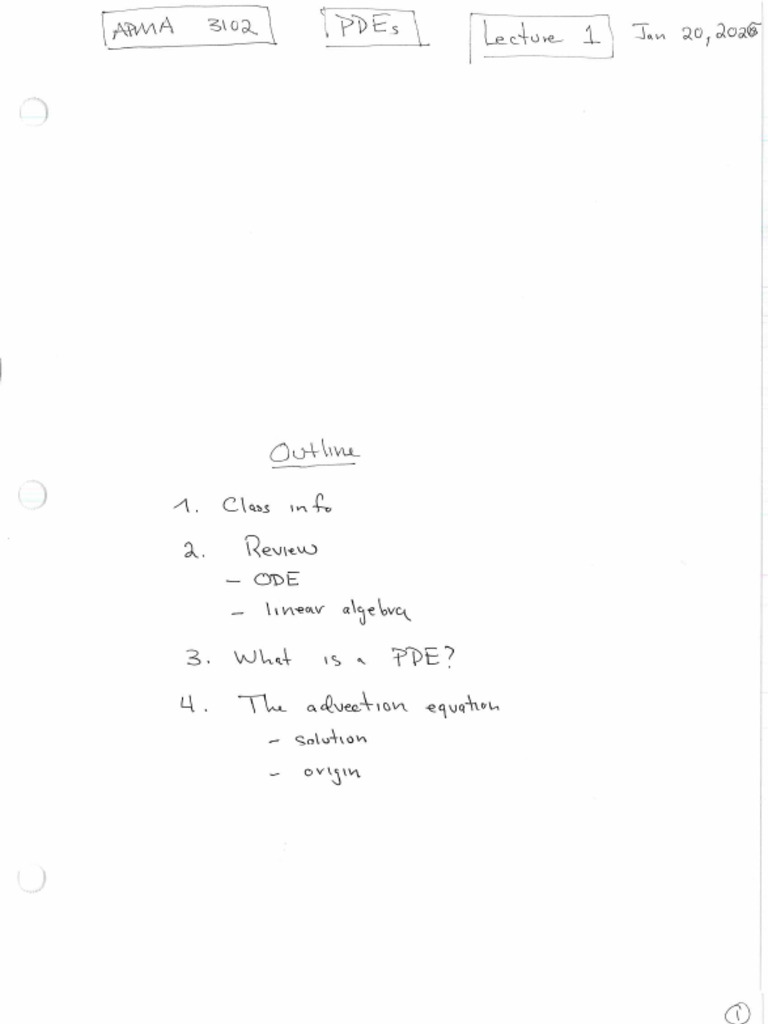 APMA 3102 PDEs Lecture 1 Jan 20, 2026
Outline
1. Class info
2. Review
- ODE
- linear algebra
3. What is a PDE?
4. The advection equation
- solution
- origin
1